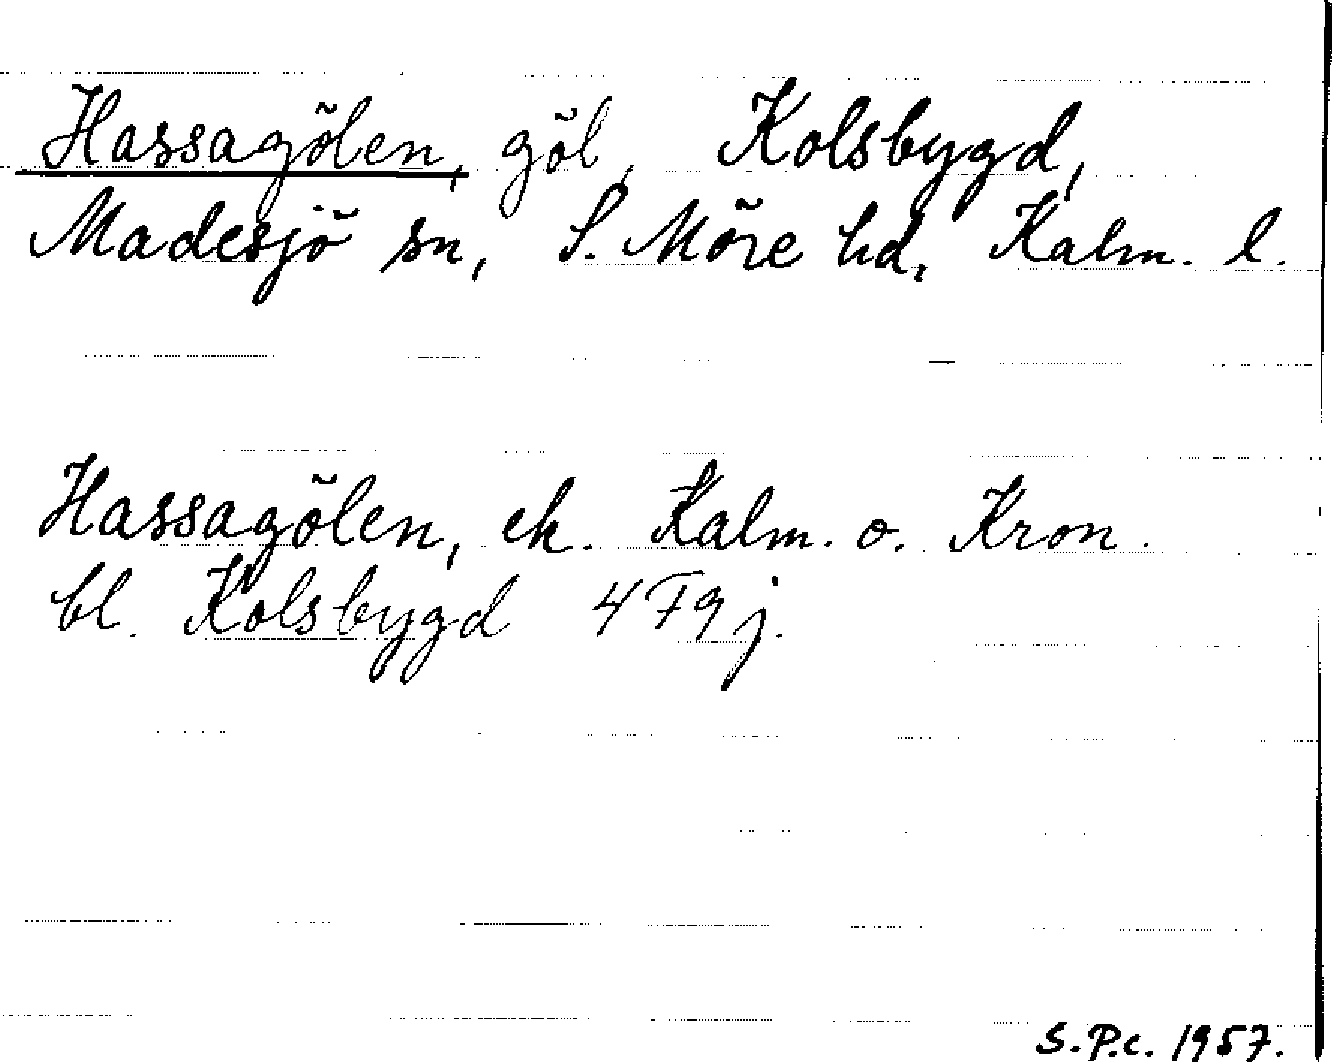 Hassagölen, göl, Kolsbygd,
Madesjö sn, S. Möre hd, Kalm. l.
Hassagölen, ek. Kalm. o. Kron.
bl. Kolsbygd 4 F 9 j.
S.P.c. 1957.